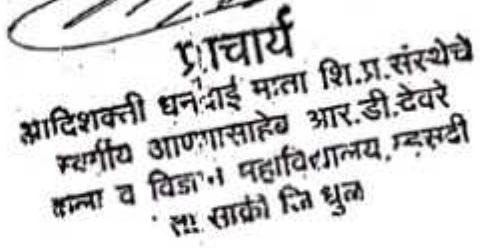 प्राचार्य
आदिशक्ती धनदाई माता शि.प्र.संस्थेचे
स्वर्गीय आण्णासाहेब आर.डी.देवरे
कला व विज्ञान महाविद्यालय, म्हसदी
ता. साक्री जि धुळे